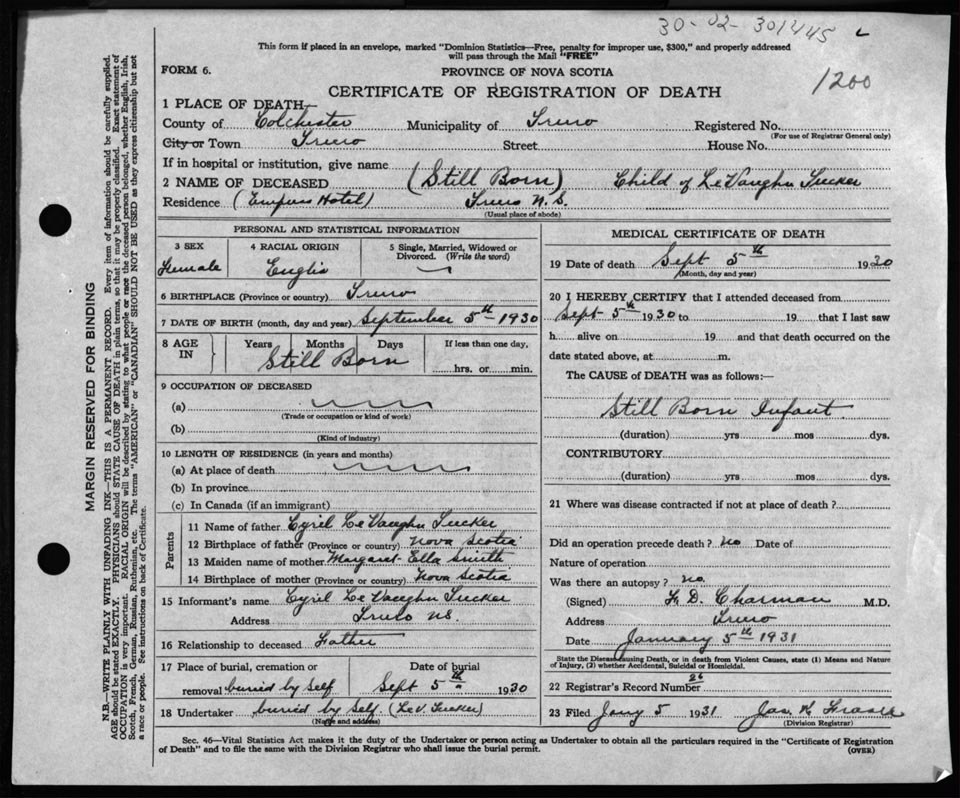 30-02-301445
This form if placed in an envelope, marked "Dominion Statistics—Free, penalty for improper use, $300," and properly addressed
will pass through the Mail "FREE"
1200
FORM 6.
PROVINCE OF NOVA SCOTIA
CERTIFICATE OF REGISTRATION OF DEATH
1 PLACE OF DEATH—
County of Colchester Municipality of Truro Registered No.
(For use of Registrar General only)
City or Town Truro Street House No.
If in hospital or institution, give name
2 NAME OF DECEASED (Still Born) Child of LeVaughn Tucker
Residence (Hotel) Truro N.S.
(Usual place of abode)
PERSONAL AND STATISTICAL INFORMATION
3 SEX Female
4 RACIAL ORIGIN Englis
5 Single, Married, Widowed or Divorced. (Write the word)
6 BIRTHPLACE (Province or country) Truro
7 DATE OF BIRTH (month, day and year) September 5th 1930
8 AGE IN Years Months Days If less than one day,
Still Born hrs. or min.
9 OCCUPATION OF DECEASED
(a)
(Trade or occupation or kind of work)
(b)
(Kind of industry)
10 LENGTH OF RESIDENCE (in years and months)
(a) At place of death
(b) In province
(c) In Canada (if an immigrant)
Parents
11 Name of father Cyril LeVaughn Tucker
12 Birthplace of father (Province or country) Nova Scotia
13 Maiden name of mother Margaret Ella Smith
14 Birthplace of mother (Province or country) Nova Scotia
15 Informant's name Cyril LeVaughn Tucker
Address Truro NS.
16 Relationship to deceased Father
17 Place of burial, cremation or Date of burial
removal buried by self Sept 5th 1930
18 Undertaker buried by self (LeV. Tucker)
(Name and address)
MEDICAL CERTIFICATE OF DEATH
19 Date of death Sept 5th 1930
(Month, day and year)
20 I HEREBY CERTIFY that I attended deceased from
Sept 5th 1930 to 19 that I last saw
h alive on 19 and that death occurred on the
date stated above, at m.
The CAUSE of DEATH was as follows:—
Still Born Infant
(duration) yrs mos dys.
CONTRIBUTORY
(duration) yrs mos dys.
21 Where was disease contracted if not at place of death?
Did an operation precede death? no Date of
Nature of operation
Was there an autopsy? no.
(Signed) D. Charman M.D.
Address Truro
Date January 5th 1931
State the Disease causing Death, or in death from Violent Causes, state (1) Means and Nature
of Injury, (2) whether Accidental, Suicidal or Homicidal.
22 Registrar's Record Number 26
23 Filed Jany 5 1931 Jas.
(Division Registrar)
Sec. 46—Vital Statistics Act makes it the duty of the Undertaker or person acting as Undertaker to obtain all the particulars required in the "Certificate of Registration
of Death" and to file the same with the Division Registrar who shall issue the burial permit.
(OVER)
MARGIN RESERVED FOR BINDING
N.B.—WRITE PLAINLY WITH UNFADING INK—THIS IS A PERMANENT RECORD. Every item of information should be carefully supplied.
AGE should be stated EXACTLY. PHYSICIANS should STATE CAUSE OF DEATH in plain terms, so that it may be properly classified. Exact statement of
OCCUPATION is very important. RACIAL ORIGIN will be described by stating to what people or race the deceased person belonged, whether English, Irish,
Scotch, French, German, Russian, Ruthenian, etc. The terms "AMERICAN" or "CANADIAN" SHOULD NOT BE USED as they express citizenship but not
a race or people. See instructions on back of Certificate.